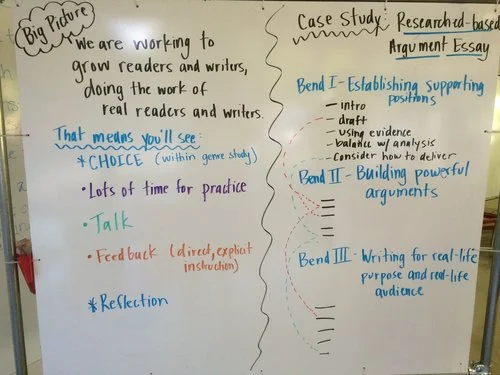 Big Picture
We are working to
grow readers and writers,
doing the work of
real readers and writers.
That means you'll see:
*CHOICE (within genre study)
• Lots of time for practice
• Talk
• Feedback (direct, explicit
instruction)
*Reflection
Case Study: Researched-based
Argument Essay
Bend I - Establishing supporting
positions
- intro
- draft
- using evidence
- balance w/ analysis
- Consider how to deliver
Bend II - Building powerful
arguments
Bend III - Writing for real-life
purpose and real-life
audience